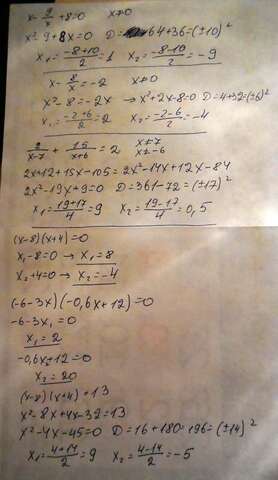 x - 9/x + 8 = 0 x≠0
x² - 9 + 8x = 0 D = 64+36 = (±10)²
x₁ = (-8+10)/2 = 1 x₂ = (-8-10)/2 = -9
x - 8/x = -2 x≠0
x² - 8 = -2x → x² + 2x - 8 = 0 D = 4+32 = (±6)²
x₁ = (-2+6)/2 = 2 x₂ = (-2-6)/2 = -4
2/(x-7) + 15/(x+6) = 2 x≠7
x≠-6
2x+12+15x-105 = 2x²-14x+12x-84
2x²-19x+9=0 D=361-72=(±17)²
x₁ = (19+17)/4 = 9 x₂ = (19-17)/4 = 0,5
(x-8)(x+4)=0
x₁-8=0 → x₁=8
x₂+4=0 → x₂=-4
(-6-3x)(-0,6x+12)=0
-6-3x₁=0
x₁=2
-0,6x+12=0
x₂=20
(x-8)(x+4)=13
x²-8x+4x-32=13
x²-4x-45=0 D=16+180=196=(±14)²
x₁ = (4+14)/2 = 9 x₂ = (4-14)/2 = -5